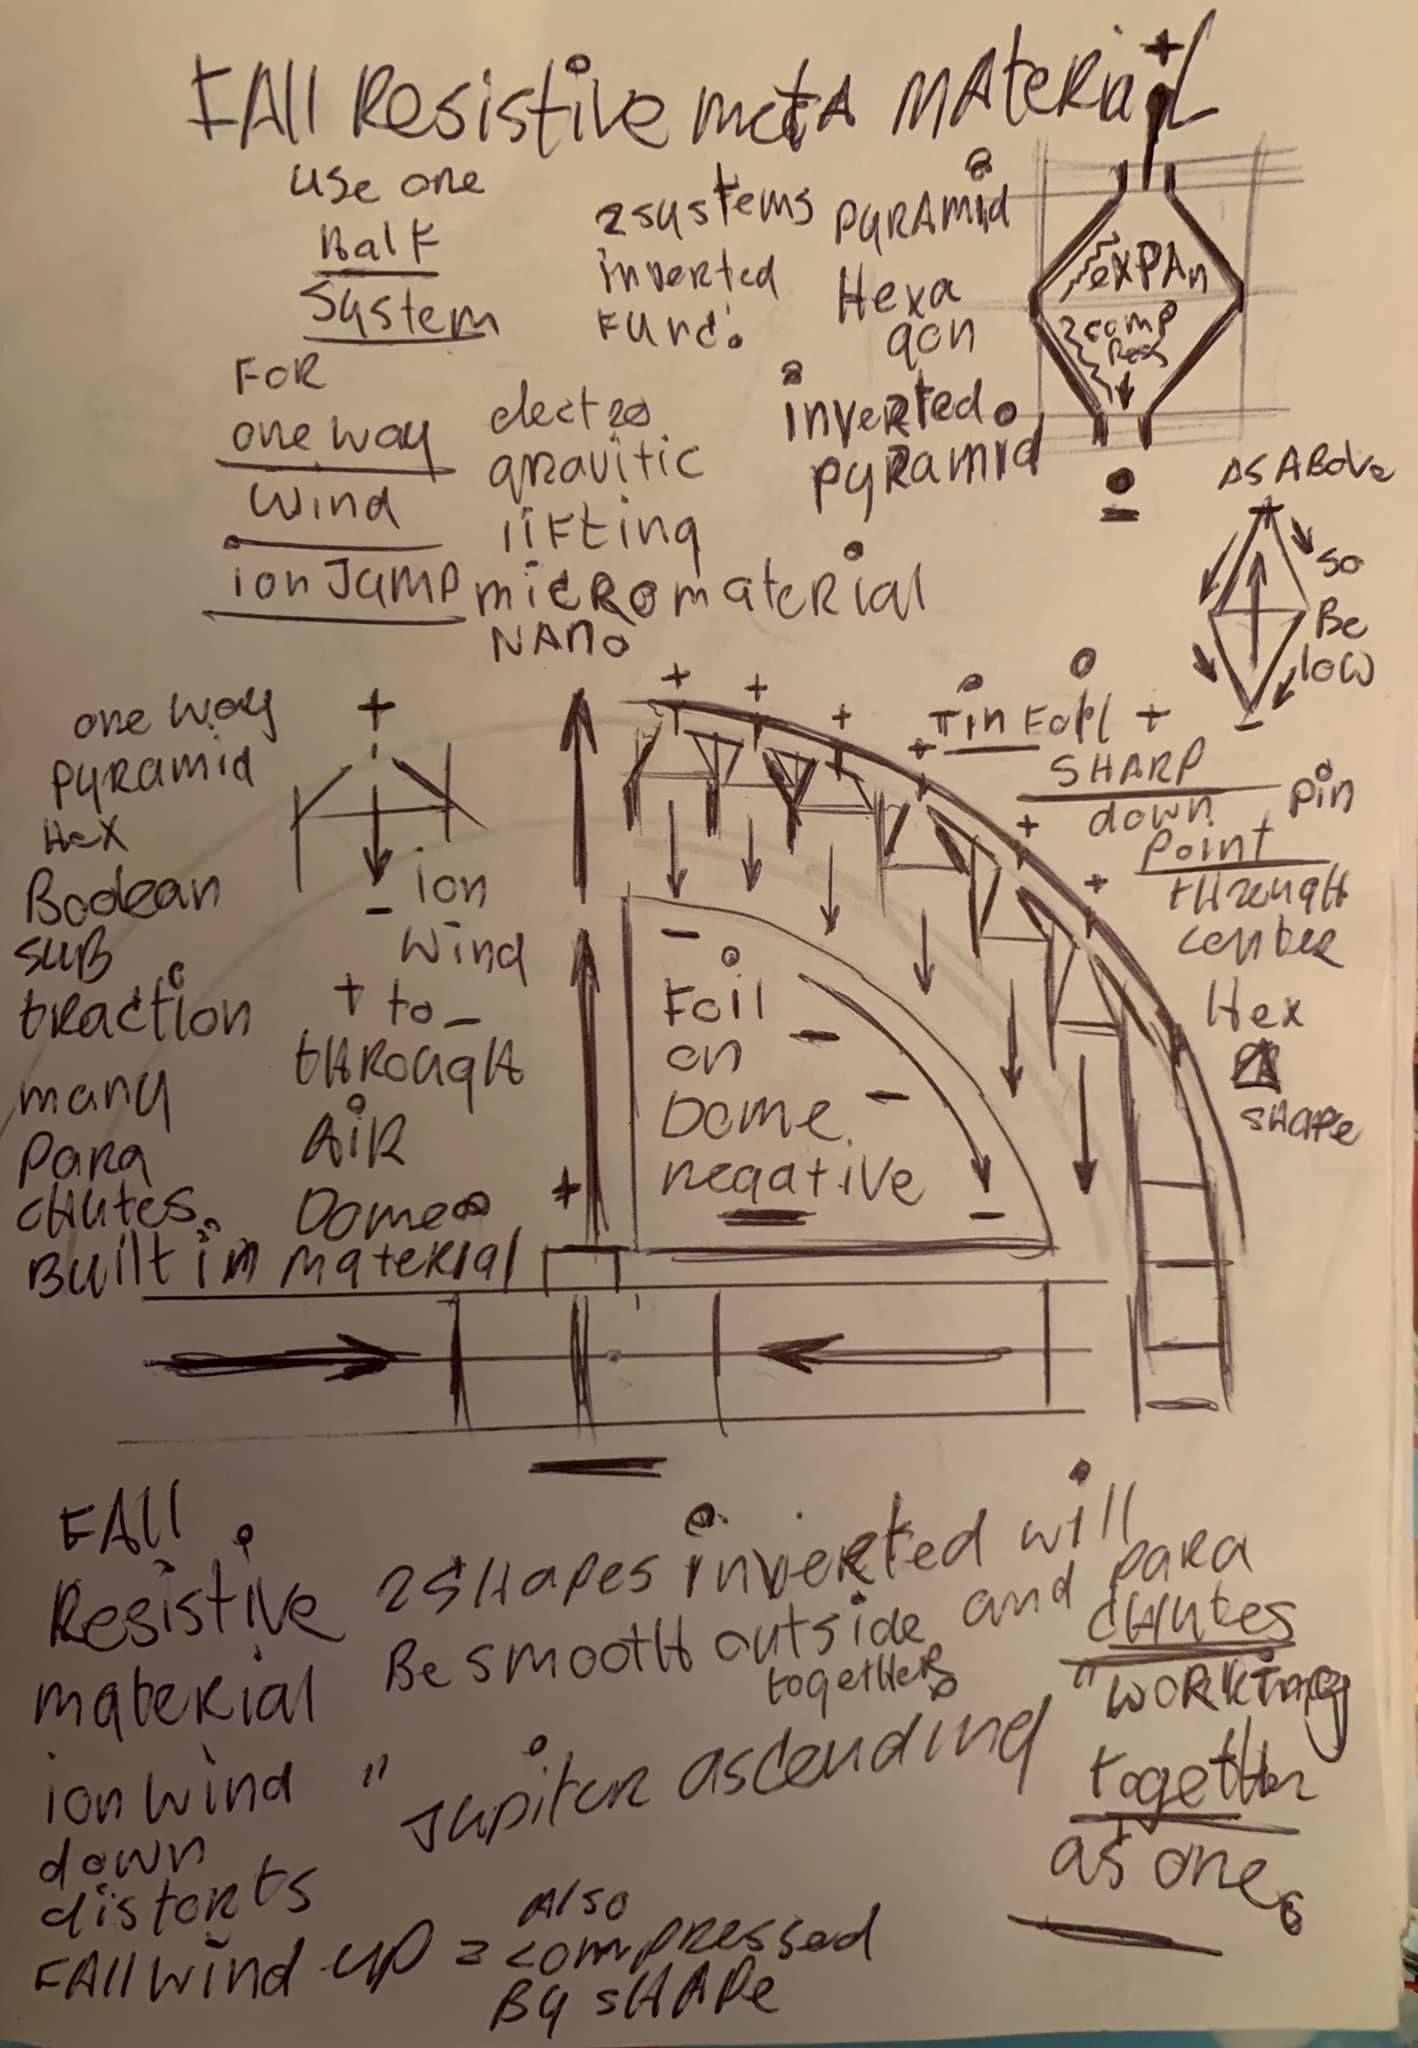 FAll Resistive metA MAteRiAl
use one
HalF
System
FOR
one way
Wind
ion Jump
2systems
inverted
Func.
electro
gravitic
liFting
micRomaterial
NAno
PyRAmid
Hexa
gon
inverted.
pyRamid
+
exPAn
comp
Res
-
AS ABove
So
Be
low
-
one way
PyRamid
Hex
Boolean
suB
traction
many
PaRa
cHutes.
Built in material
+
- ion
Wind
+ to -
tHRougH
AiR
Dome
+
+ + + + + + +
Tin Foil +
SHARP
down pin
Point
tHRougH
center
Hex
SHAPe
-
Foil
on
Dome
negative
-
-
-
-
FAll
Resistive
material
ion wind
down
distorts
FAll wind up = also compRessed
By sHAPe
2 SHAPes inverted will
Be smootH outside and paRa
togetHeR
cHutes
"Jupiter ascending
"woRKing
togetHeR
as one